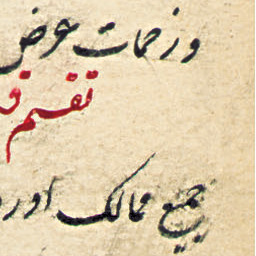 وزحمات عرض
تقسم
جميع ممالك اور